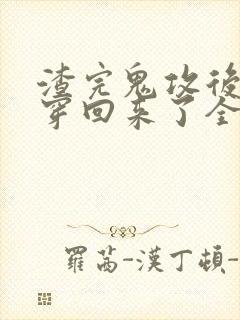 渣完鬼攻後
穿回來了全
羅茜-漢丁頓-